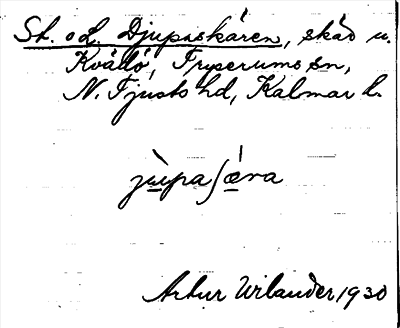 St. o L. Djupaskären, skär u.
Kvädö, Tryserums sn,
N. Tjusts hd, Kalmar l.
jùpaʃǽra
Artur Wilander 1930